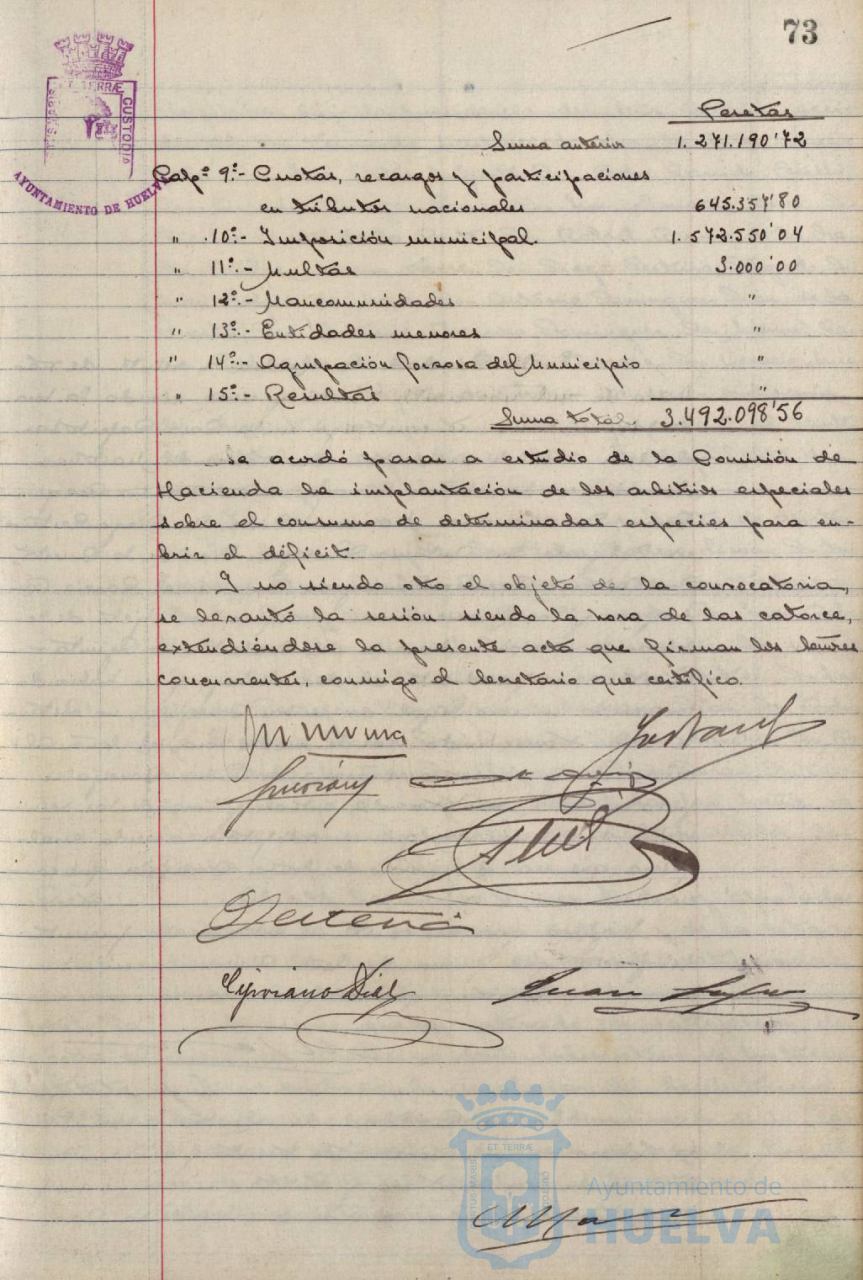 73
ET TERRÆ
CUSTODIA
AYUNTAMIENTO DE HUELVA
Pesetas
Suma anterior 1.271.190'72
Capº 9º.- Cuotas, recargos y participaciones
en tributos nacionales 645.357'80
" 10º.- Imposición municipal. 1.572.550'04
" 11º.- Multas 3.000'00
" 12º.- Mancomunidades "
" 13º.- Entidades menores "
" 14º.- Agrupación forzosa del Municipio "
" 15º.- Resultas "
Suma total. 3.492.098'56
Se acordó pasar a estudio de la Comisión de
Hacienda la implantación de los arbitrios especiales
sobre el consumo de determinadas especies para cu-
brir el déficit.
Y no siendo otro el objeto de la convocatoria,
se levantó la sesión siendo la hora de las catorce,
extendiéndose la presente acta que firman los Señores
concurrentes, conmigo el Secretario que certifico.
Cipriano Díaz
Juan
ET TERRÆ
Ayuntamiento de
HUELVA